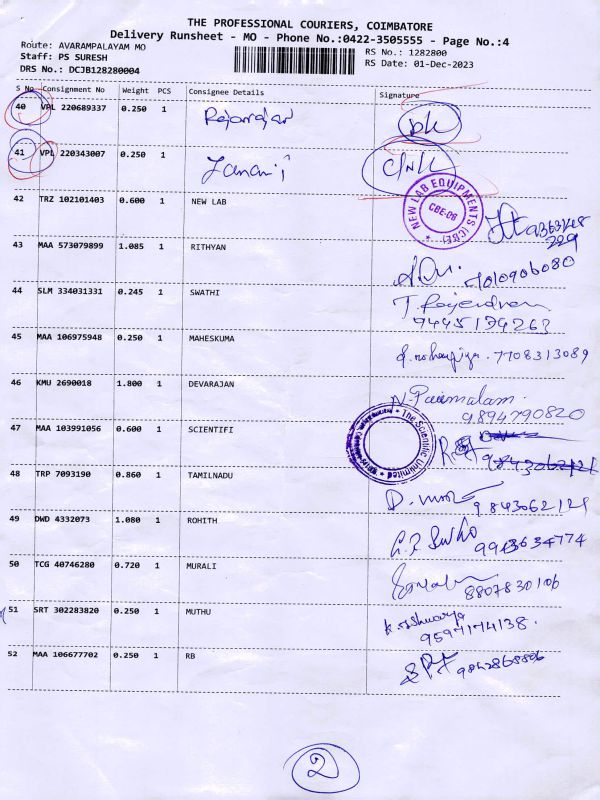 THE PROFESSIONAL COURIERS, COIMBATORE
Delivery Runsheet - MO - Phone No.:0422-3505555 - Page No.:4
Route: AVARAMPALAYAM MO
RS No.: 1282800
Staff: PS SURESH
RS Date: 01-Dec-2023
DRS No.: DCJB128280004
S No Consignment No Weight PCS Consignee Details Signature
40 VPL 220689337 0.250 1
41 VPL 220343007 0.250 1
42 TRZ 102101403 0.600 1 NEW LAB
NEW LAB EQUIPMENTS (CBE)
CBE-06
43 MAA 573079899 1.085 1 RITHYAN
7010906080
44 SLM 334031331 0.245 1 SWATHI
T. Rajendran
9445179263
45 MAA 106975948 0.250 1 MAHESKUMA
7708313089
46 KMU 2690018 1.800 1 DEVARAJAN
N. Parimalam
9894790820
47 MAA 103991056 0.600 1 SCIENTIFI
The Scientific Unlimited
48 TRP 7093190 0.860 1 TAMILNADU
9843062121
49 DWD 4332073 1.080 1 ROHITH
9943634774
50 TCG 40746280 0.720 1 MURALI
8807830106
51 SRT 302283820 0.250 1 MUTHU
9597174138.
52 MAA 106677702 0.250 1 RB
2